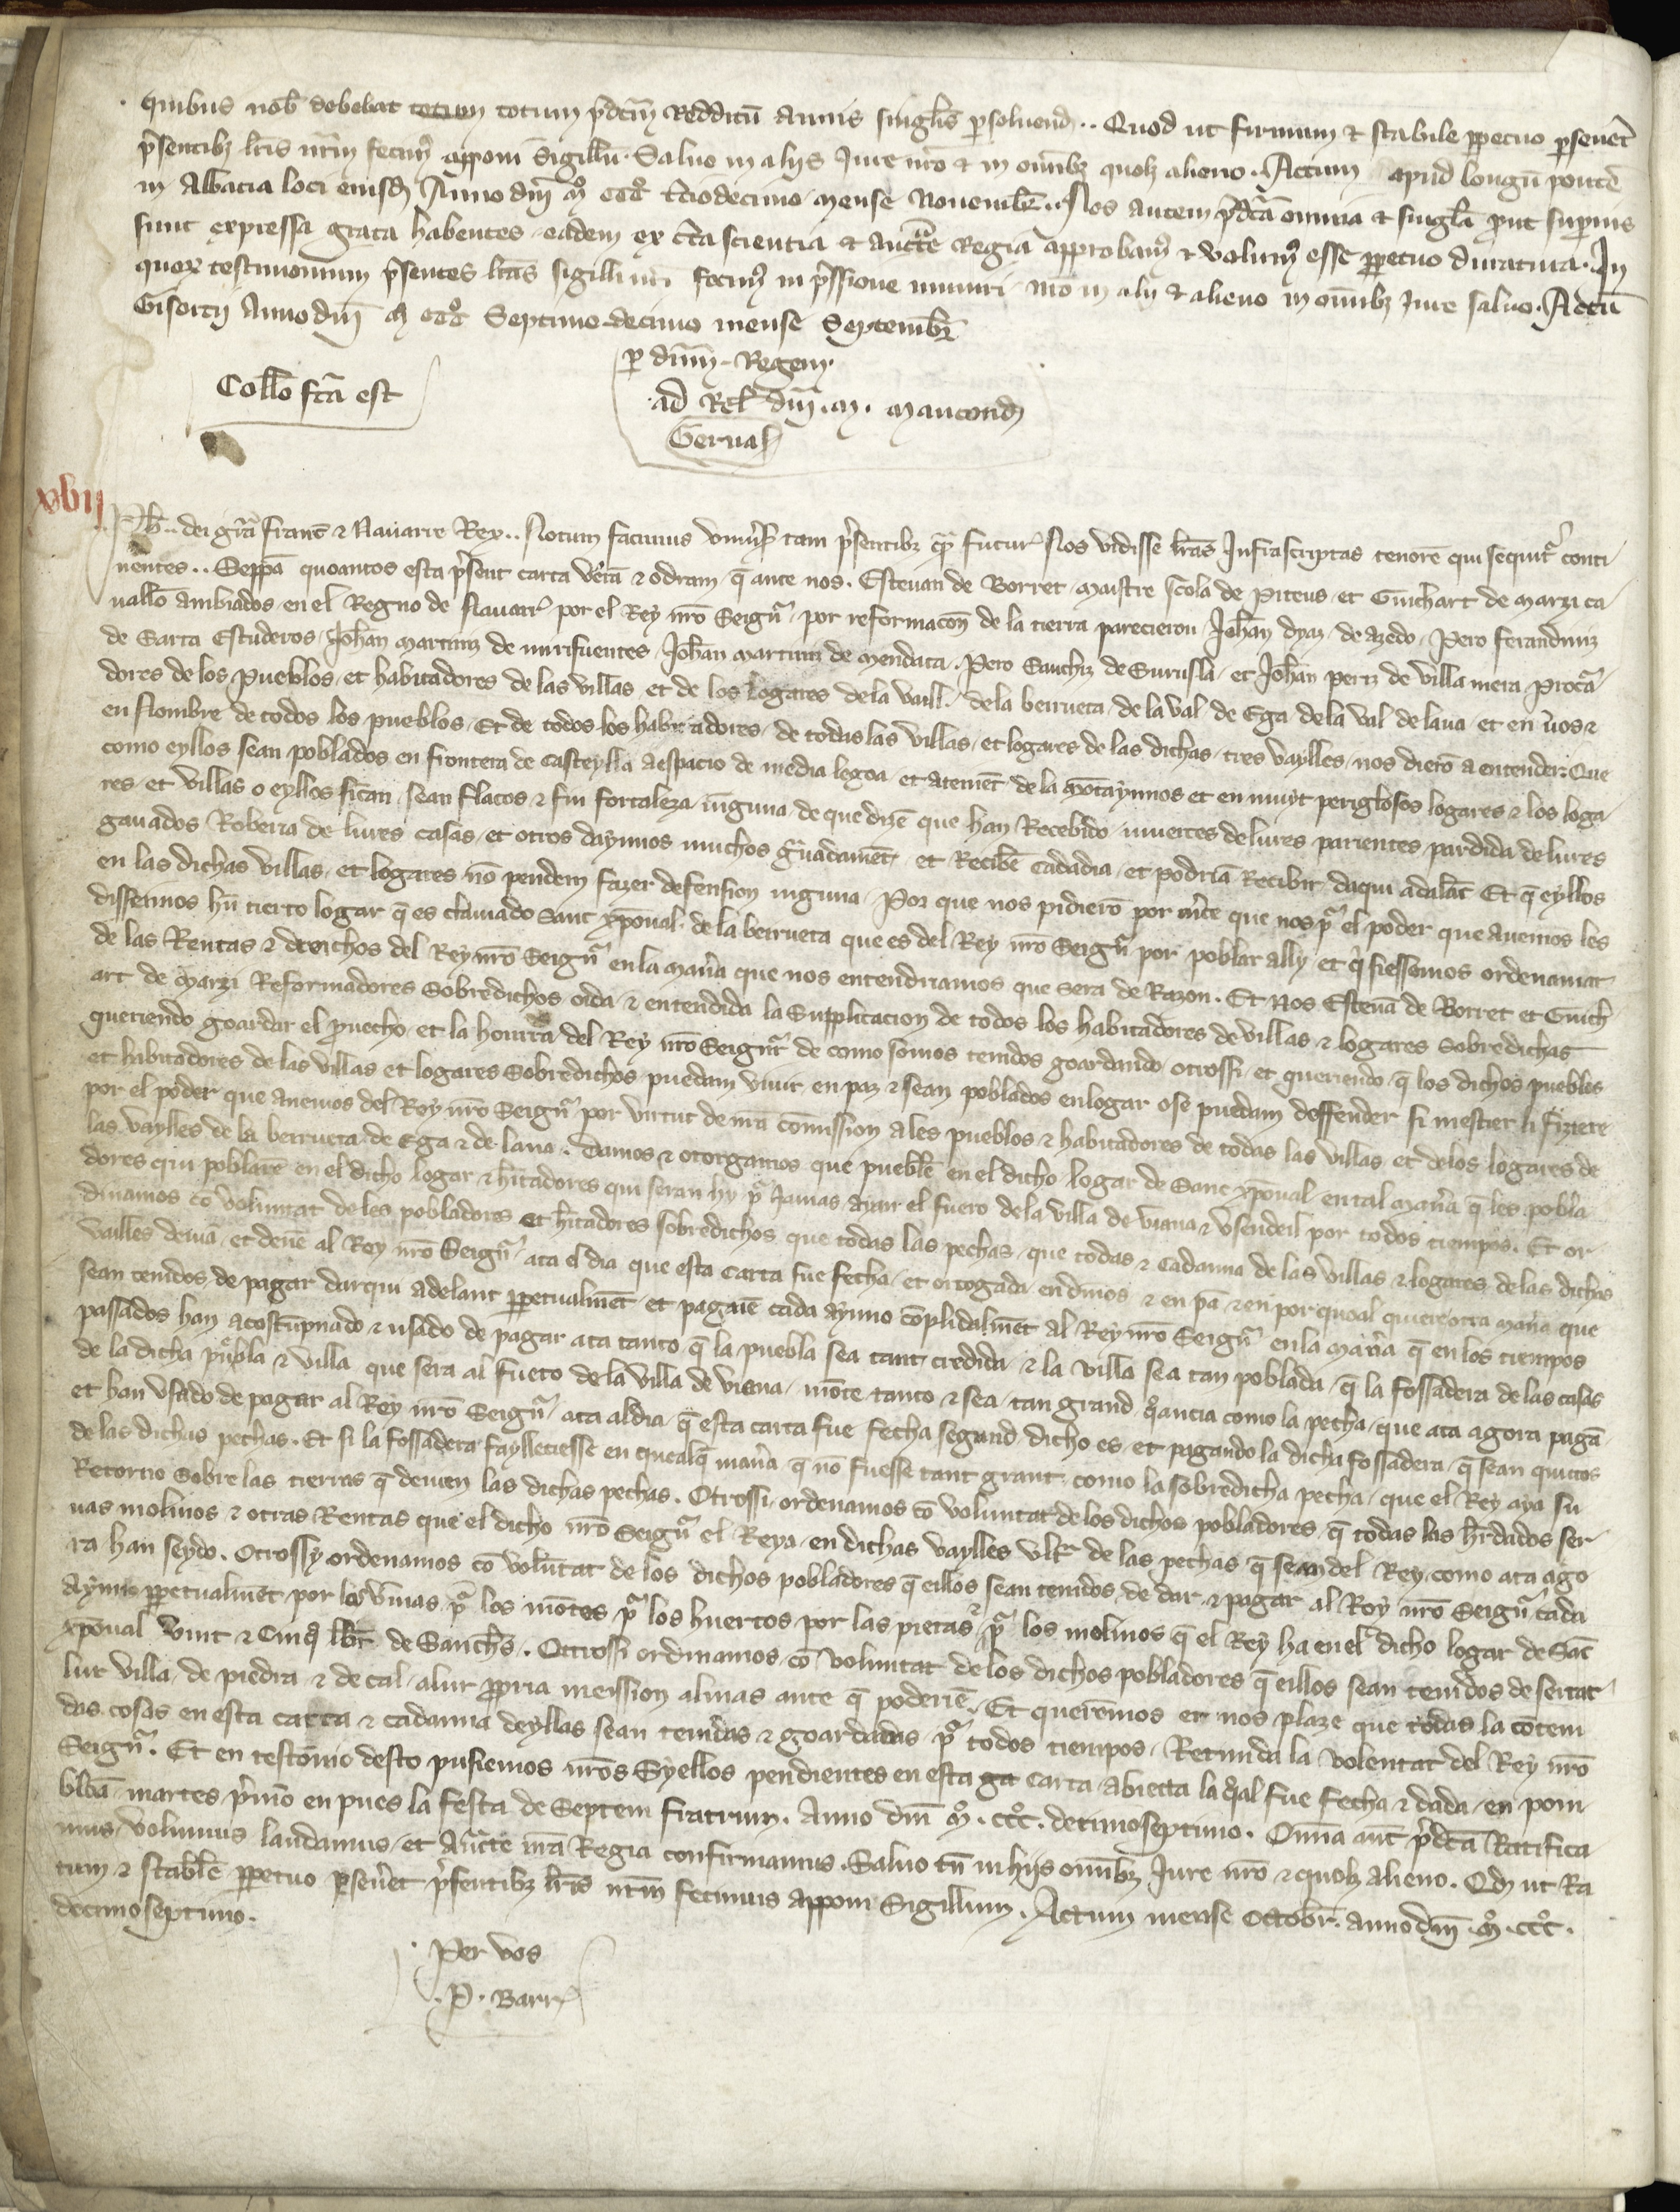 quibus nob̄ debebat totum p̄dcm̄ Redditū annis singl̄is psoluend.. Quod ut firmum & stabile ppetuo pseueret
p̄sentibz lr̄is nr̄m fecim9 apponi Sigillū. Saluo in aliis Jure nr̄o & in om̄ibz quolz alieno. Actum apud longū pontē
in Abbacia loci eiusd Anno dn̄i mº cccº tciodecimo mense Nouembr̄.. Nos autem p̄dcā omnia & singl̄a put supius
sunt expressa grata habentes eadem ex c̄ta scientia & auctte Regia approbam9 & volum9 esse ppetuo duratura. In
quor testimonium p̄sentes lr̄as sigilli nr̄i fecim9 inp̄ssione muniri nr̄o in alii & alieno in om̄ibz iure saluo. Actū
Gisorcii Anno dn̄i m cccº Septimo decimo mense Septembr̄
Coll̄o fc̄a est
p dn̄m Regem
ad Rel̄ dn̄i .m. maucond
Geruas
xvij
Ph̄.. dei gr̄a Franc̄ & Nauarre Rex.. Notum facimus vniu̕s̕ tam p̄sentibz q̄ futur̕ Nos vidisse lr̄as Infrascriptas tenorē qui sequit̕ conti
nentes.. Seppā quoantos esta p̄sent carta ver̄ā & odran q̄ ante nos. Esteuan de Borret maistre scola de Piteus et Guichart de marzi ca
uallō ambiados en el Regno de Nauarr̕ por el Rey nr̄o Seign̄r̕ por reformacōn de la tierra parecieron Joh̄an dyaz de azedo Pero ferandiuiz
de Sarta Escuderos Joh̄an martiniz de mirifuentes Joh̄an martiniz de mendaca Pero Sanchiz de Surusla et Joh̄an periz de villa mera Procra
dores de los Pueblos et habitadores de las villas et de los logares dela vaill de la berrueta de la val de Ega de la val de lana et en vos &
en Nombre de todos los pueblos Et de todos los habitadores de todas las villas et logares de las dichas tres vaylles nos dierō a entender Que
como eyllos sean poblados en frontera de casteylla a espacio de media legoa et atenient de la mōtaynnos et en muyt periglosos logares & los loga
res et villas o eyllos fican sean flacos & sin fortaleza ninguna de que dizē que han Recebido muertes de lures parientes pardida de lures
ganados Roberia de lures casas et otros daynnos muchos gr̄uadament et Reciben cadadia et podriā Recibir daqui adalāt Et q̄ eyllos
en las dichas villas et logares nō pendem fazer defension ninguna Por que nos pidierō por mrc̄e que nos pr̕ el poder que auemos les
diessemos hū cierto logar q̄ es clamado Sant xp̄oual de la berrueta que es del Rey nr̄o Seign̄r̕ por poblar ally et q̄ fiessemos ordenamiēt
de las Rentas & dreichos del Rey nr̄o Seign̄r̕ en la manr̄a que nos entendiriamos que sera de Razon. Et Nos Esteuā de Borret et Guich
art de marzi Reformadores Sobredichos oida & entendida la Supplicacion de todos los habitadores de villas & logares Sobredichas
queriendo goardar el prouecho et la hourra del Rey nr̄o Seign̄r̕ de como somos tenidos goardando otrossi et queriendo q̄ los dichos pueblos
et habitadores de las villas et logares Sobredichos puedam viuir en paz & sean poblados en logar o se puedam deffender si mestier li fiziere
por el poder que auemos del Rey nr̄o Seign̄r̕ por virtut de nr̄a cōmission a les pueblos & habitadores de todas las villas et de los logares de
las vaylles de la berrueta de Ega & de lana. Damos & otorgamos que pueblē en el dicho logar de Sanc xp̄oual en tal manr̄a q̄ les pobla
dores qui poblarē en el dicho logar & hitadores qui seran hy pr̕ Jamas ayan el fuero de la villa de viana & vsen deil por todos tiempos. Et or
dinamos cō voluntat de les pobladores et hitadores sobredichos que todas las pechas que todas & cadauna de las villas & logares de las dichas
vailles deuiā et deuē al Rey nr̄o Seign̄r̕ ata el dia que esta carta fue fecha et ortogada en din̄os & en pā & en por quoal quiere otra manr̄a que
sean tenidos de pagar daqui adelant ppetualmēt et paguē cada aynno cōplidalmēt al Rey nr̄o Seign̄r̕ en la manr̄a q̄ en los tiempos
passados han acostūpnado & usado de pagar ata tanto q̄ la puebla sea tant credida & la villa sea tan poblada q̄ la fossadera de las casas
de la dicha puebla & villa que sera al fuero de la villa de viana mōte tanto & sea tan grand q̄ancia como la pecha que ata agora pagā
et han vsado de pagar al Rey nr̄o Seign̄r̕ ata al dia q̄ esta carta fue fecha segund dicho es et pagando la dicha fossadera q̄ sean quitos
de las dichas pechas. Et si la fossadera faylleciesse en quealq̄ manr̄a q̄ nō fuesse tant grant como la sobredicha pecha que el Rey aya su
Retorno Sobre las tierras q̄ deuen las dichas pechas. Otrossi ordenamos cō voluntat de los dichos pobladores q̄ todas las hr̄dados ser
nas molinos & otras Rentas que el dicho nr̄o Seign̄r̕ el Rey a en dichas vaylles vltr̕ de las pechas q̄ sean del Rey como ata ago
ra han seydo. Otrossy ordenamos cō volūtat de los dichos pobladores q̄ eillos sean tenidos de dar & pagar al Rey nr̄o Seign̄r̕ cada
aynno ppetualmēt por las vinnas pr̕ los mōtes pr̕ los huertos por las pieças & pr̕ los molinos q̄ el Rey ha en el dicho logar de Sāc
xp̄oual vint & Cinq̄ lbr̄ de Sanchs. Otrossi ordinamos cō voluntat de los dichos pobladores q̄ eillos sean tenidos de serrar
lur villa de piedra & de cal a lur ppria meission al mas ante q̄ poderiē. Et querēmos et nos plaze que todas la cōteni
das cosas en esta carta & cadauna deyllas sean tenidas & goardadas pr̕ todos tiempos Retenida la volentat del Rey nr̄o
Seign̄r̕. Et en testōnio desto pusiemos nr̄os Syellos pendientes en esta carta abierta la q̄al fue fecha & dada en pom
blōa martes p̄mō en pues la festa de Septem fratrum. Anno dn̄i mº. cccº. decimoseptimo. Om̄ia aut p̄dcā Ratifica
mus volumus laudamus et Auctte nr̄a Regia confirmamus. Saluo tn̄ in hijs om̄ibz Jure nr̄o & quolz alieno. Qd ut Ra
tum & stablē ppetuo pseu̕et p̄sentibz lr̄is nr̄m fecimus apponi Sigillum. Actum mense Octobr̄. anno dn̄i .mº. cccº.
decimoseptimo.
Per vos
.P. Barr̕